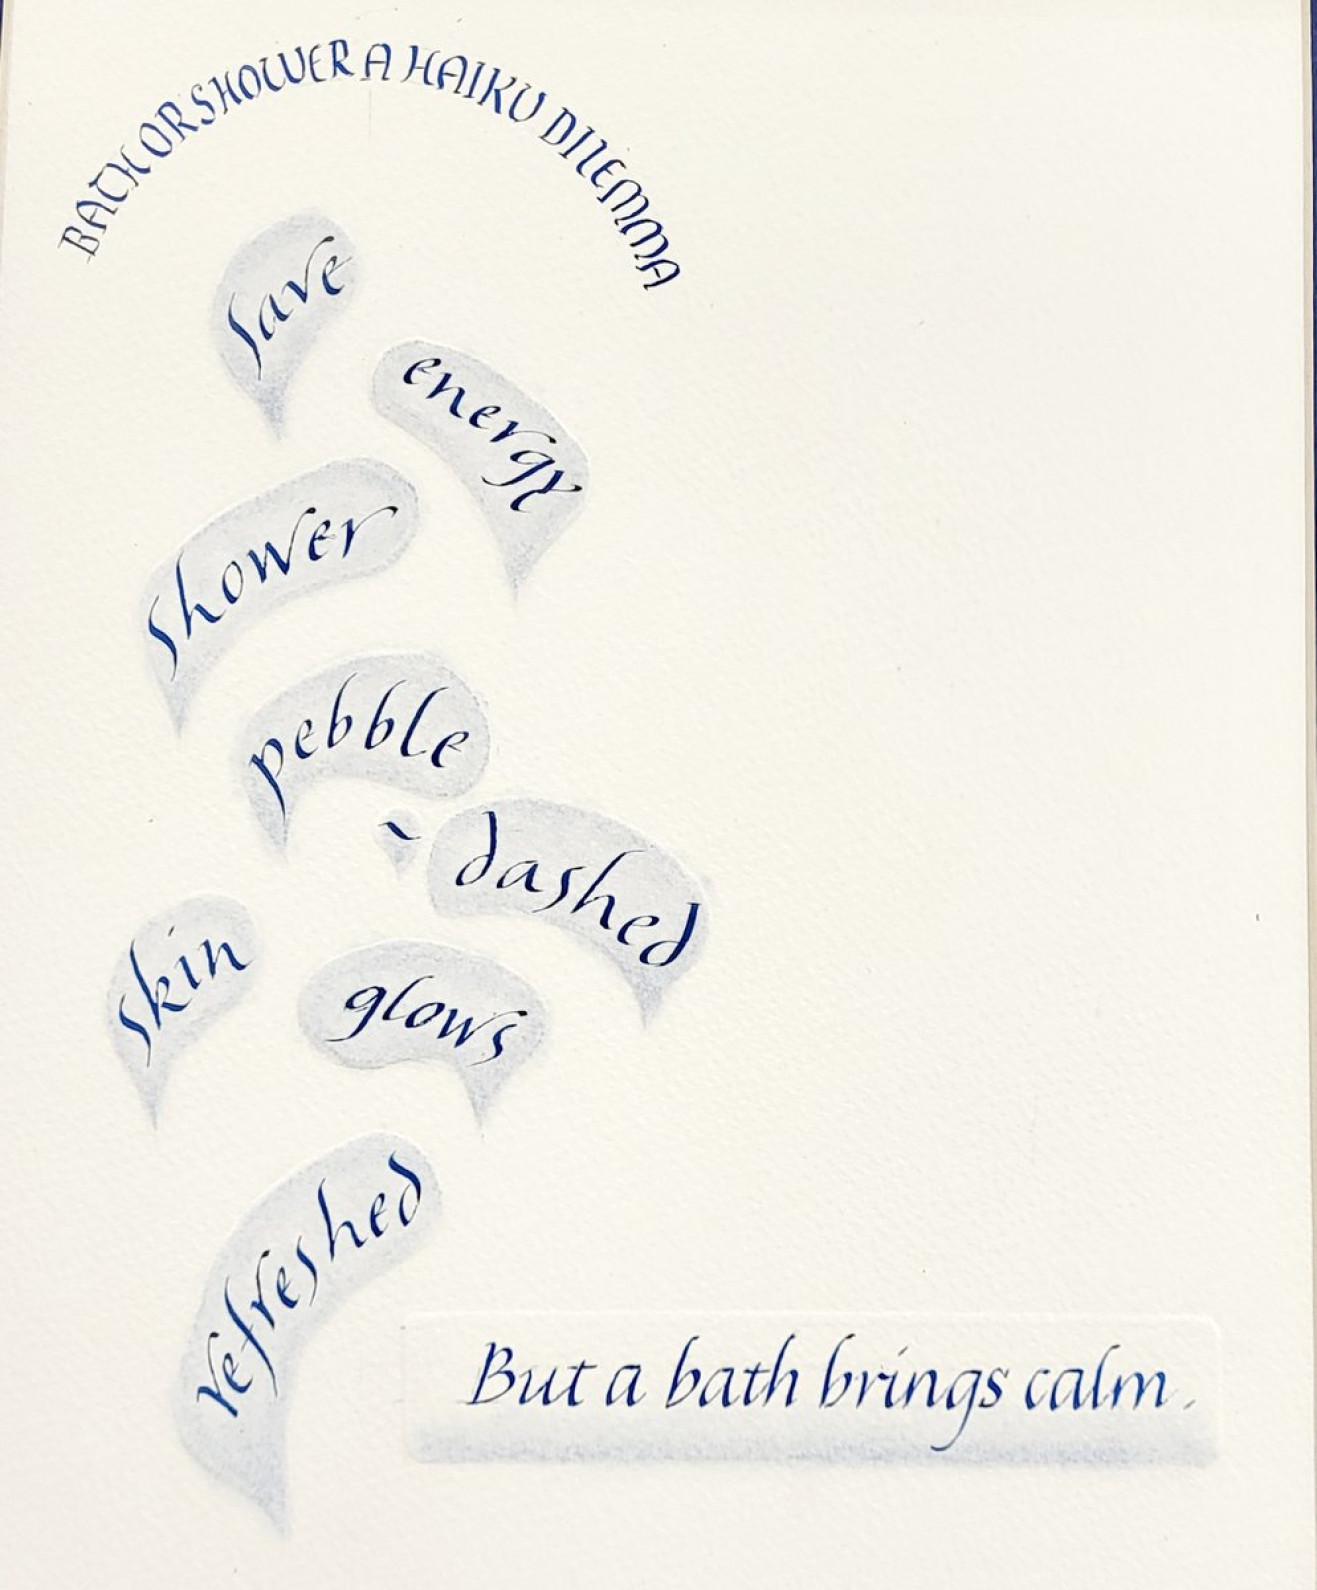 BATH OR SHOWER A HAIKU DILEMMA
save
energy
shower
pebble
- dashed
skin
glows
refreshed
But a bath brings calm.